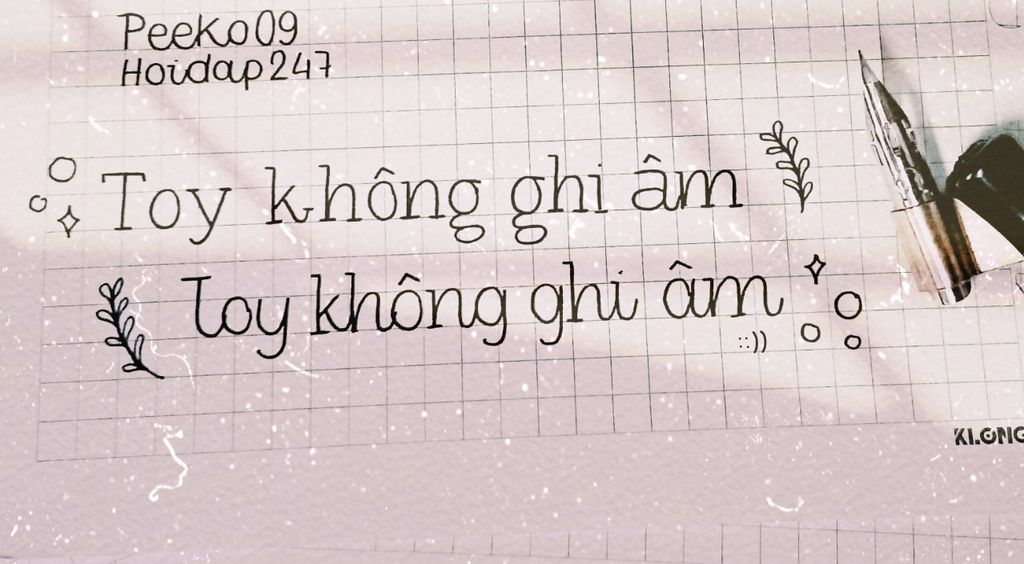 Peeko09
Hoidap247
Toy không ghi âm
Toy không ghi âm
::))
KLONG